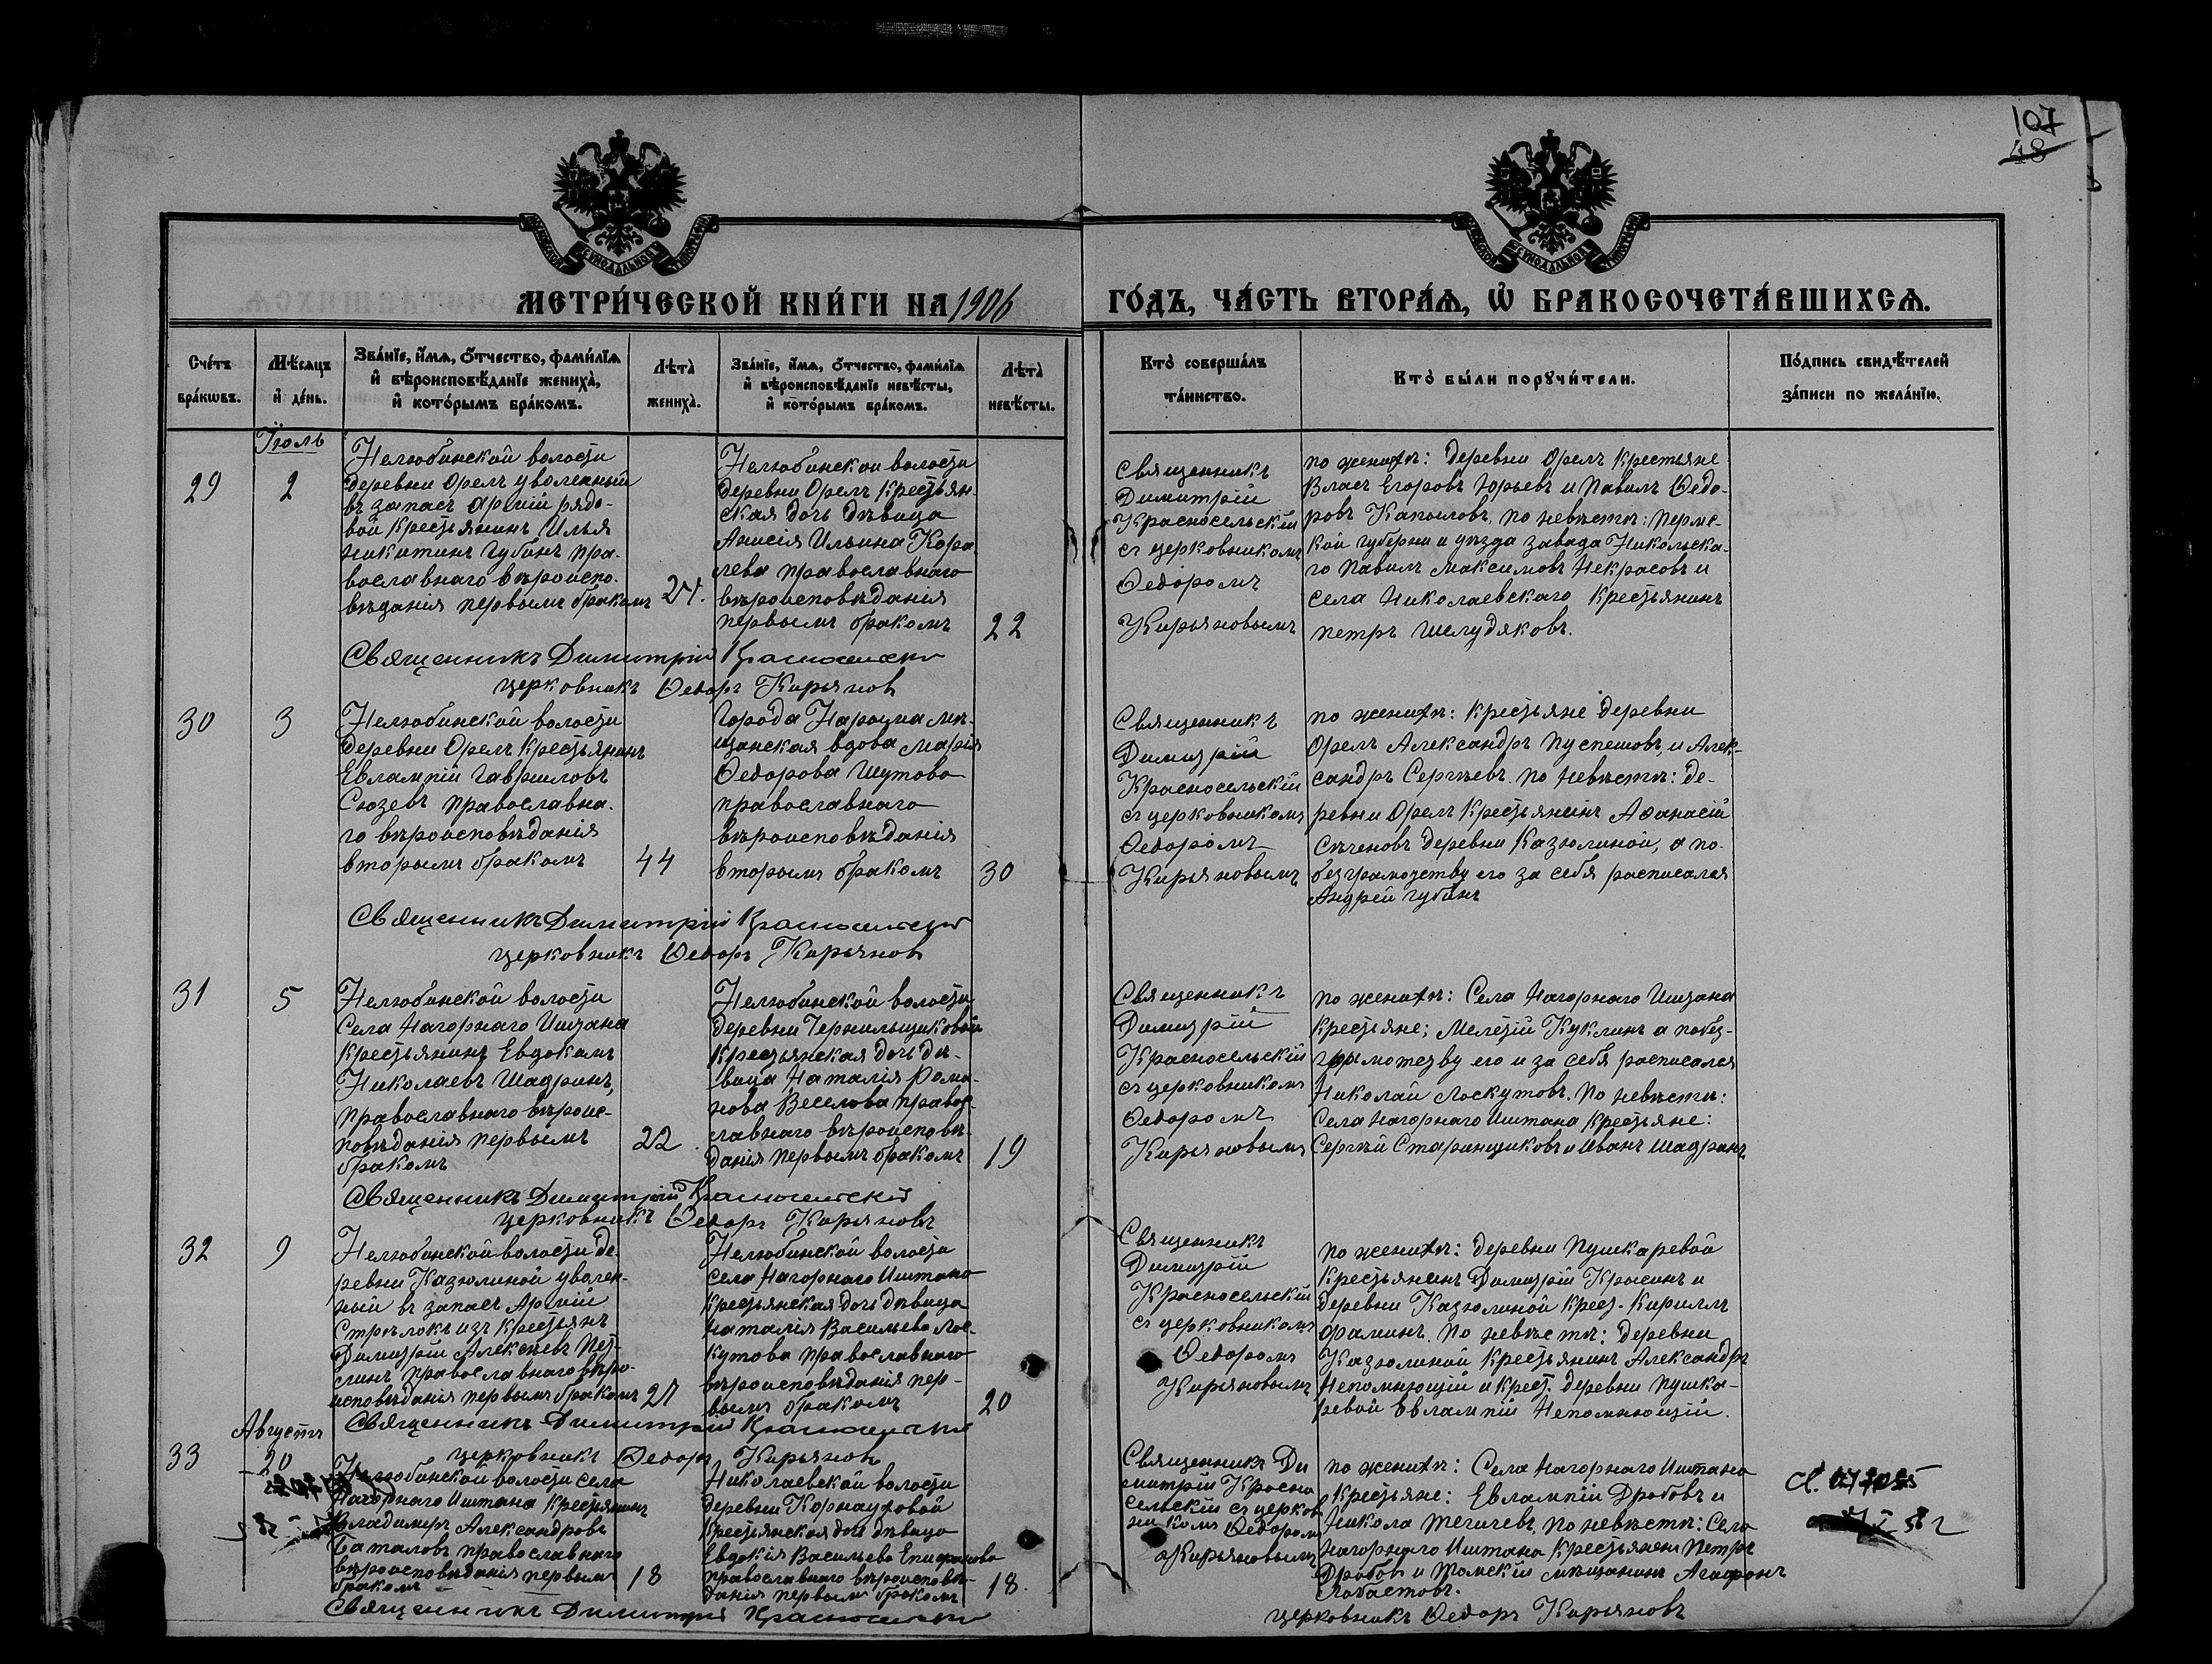 107
48
МЕТРИ́ЧЕСКОЙ КНИ́ГИ НА 1906 ГО́ДЪ, ЧА́СТЬ ВТОРА́Я, Ѡ БРАКОСОЧЕТА́ВШИХСЯ.
Сче́тъ бра́кωвъ.
Мѣ́сяцъ и҆ де́нь.
Зва́нїе, и҆́мя, о҆́тчество, фами́лїя
и҆ вѣроисповѣ́данїе жениха̀,
и҆ кото́рымъ бра́комъ.
Лѣта̀ жениха̀.
Зва́нїе, и҆́мя, о҆́тчество, фами́лїя
и҆ вѣроисповѣ́данїе невѣ́сты,
и҆ кото́рымъ бра́комъ.
Лѣта̀ невѣ́сты.
Кто̀ соверша́лъ
та́инство.
Кто̀ бы́ли порꙋчи́тели.
По́дпись свидѣ́телей
за́писи по жела́нїю.
Іюль
29
2
Нелюбинской волости
деревни Орелъ уволенный
въ запасъ Армiй рядо-
вой крестьянинъ Илья
Никитинъ Губинъ пра-
вославнаго вѣроиспо-
вѣданія первымъ бракомъ
24.
Нелюбинской волости
деревни Орелъ крестьян-
ская дочь дѣвица
Анисія Ильина Кора-
лева православнаго
вѣроисповѣданія
первымъ бракомъ
22
Священникъ
Димитрій
Красносельскій
съ церковникомъ
Ѳедоромъ
Кирьяновымъ
по женихѣ: деревни Орелъ крестьяне
Власъ Егоровъ Юрьевъ и Павелъ Ѳедо-
ровъ Капыловъ, по невѣстѣ: пермс-
кой губерни и уѣзда завода Никольска-
го Павелъ Максимовъ Некрасовъ и
села Николаевскаго крестьянинъ
Петръ Шелудяковъ.
Священникъ Димитрій Красносельскій
церковникъ Ѳедоръ Кирьяновъ
30
3
Нелюбинской волости
деревни Орелъ крестьянинъ
Евлампій Гавриловъ
Сюзевъ православна-
го вѣроисповѣданія
вторымъ бракомъ
44
Города Нарыма мѣ-
щанская вдова Марія
Ѳедорова Шутова
православнаго
вѣроисповѣданія
вторымъ бракомъ
30
Священникъ
Димитрій
Красносельскій
съ церковникомъ
Ѳедоромъ
Кирьяновымъ
по женихѣ: крестьяне деревни
Орелъ Александръ Пуспешовъ, и Алек-
сандръ Сергѣевъ. по невѣстѣ: де-
ревни Орелъ крестьянинъ Аѳанасій
Сѣченовъ деревни Казюлиной, а по
безграмотству его за себя росписался
Андрей Губинъ
Священникъ Димитрій Красносельскій
церковникъ Ѳедоръ Кирьяновъ
31
5
Нелюбинской волости
Села Нагорнаго Иштана
крестьянинъ Евдокимъ
Николаевъ Шадринъ,
православнаго вѣроис-
повѣданія первымъ
бракомъ
22
Нелюбинской волости
деревни Чернильщиковой
крестьянская дочь дѣ-
вица Наталія Рома-
нова Веселова правос-
лавнаго вѣроисповѣ-
данія первымъ бракомъ
19
Священникъ
Димитрій
Красносельскій
съ церковникомъ
Ѳедоромъ
Кирьяновымъ
по женихѣ: Села Нагорнаго Иштана
крестьяне; Мелетій Куклинъ а побез-
грамотству его и за себя росписался
Николай Лоскутовъ. По невѣстѣ:
Села Нагорнаго Иштана крестьяне:
Сергѣй Старинщиковъ и Иванъ Шадринъ.
Священникъ Димитрій Красносельскій
церковникъ Ѳедоръ Кирьяновъ
32
9
Нелюбинской волости де-
ревни Казюлиной уволен-
ный въ запасъ Армiй
Стрѣлокъ изъ крестьянъ
Димитрій Алексѣевъ
православнаго вѣро-
исповѣданія первымъ бракомъ
27
Нелюбинской волости
села Нагорнаго Иштана
крестьянская дочь дѣвица
Наталія Васильева Лос-
кутова православнаго
вѣроисповѣданія пер-
вымъ бракомъ
20
Священникъ
Димитрій
Красносельскій
съ церковникомъ
Ѳедоромъ
Кирьяновымъ
по женихѣ: деревни Пушкаревой
крестьянинъ Димитрій Красинъ и
деревни Казюлиной крест. Кириллъ
Фоминъ. По невѣстѣ: деревни
Казюлиной крестьянинъ Александръ
Непомнющій и крест. деревни Пушка-
ревой Евлампій Непомнющій.
Священникъ Димитрій Красносельскій
церковникъ Ѳедоръ Кирьяновъ
Августъ
33
20
Нелюбинской волости села
Нагорнаго Иштана крестьянинъ
Владимiръ Александровъ
Баталовъ православнаго
вѣроисповѣданія первымъ
бракомъ
18
Николаевской волости
деревни Карнауховой
крестьянская дочь дѣвица
Евдокія Васильева Епифанова
православнаго вѣроисповѣ-
данія первымъ бракомъ
18.
Священникъ Ди
митрій Красно
сельскій съ церков
никомъ Ѳедоромъ
Кирьяновымъ
по женихѣ: Села Нагорнаго Иштана
крестьяне: Евлампій Дробовъ и
Никола Тегичевъ, по невѣстѣ: Села
Нагорнаго Иштана крестьянинъ Петръ
Дробовъ и Томскій мѣщанинъ Агафонъ
Лобастовъ.
Священникъ Димитрій Красносельскій
церковникъ Ѳедоръ Кирьяновъ